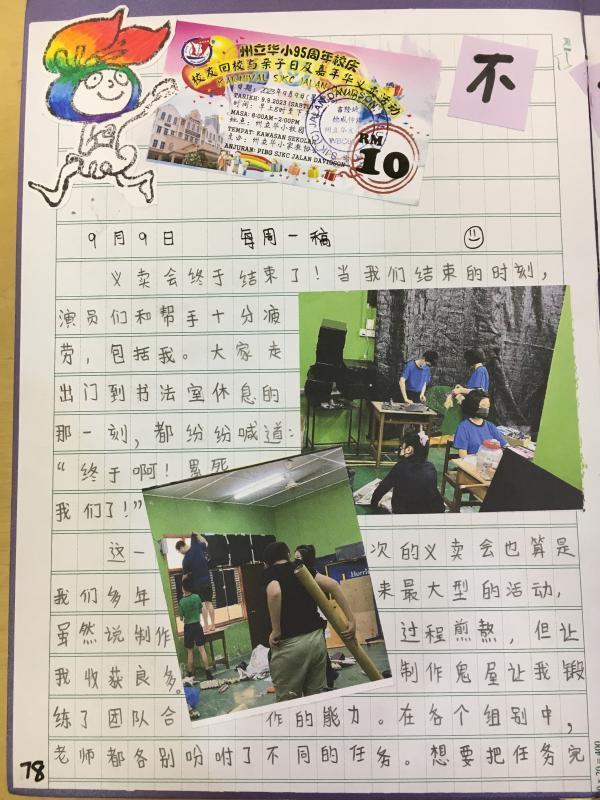 州立华小95周年校庆
校友回校与亲子日及嘉年华义卖活动
KARNIVAL SJKC JALAN DAVIDSON
日期：2023年9月9日
TARIKH: 9.9.2023 (SABTU)
时间：早上8时至下午
MASA: 8:00AM-2:00PM
地点：州立华小校园
TEMPAT: KAWASAN SEKOLAH
主办：州立华小家教协
ANJURAN: PIBG SJKC JALAN DAVIDSON
RM
10
不
9月9日 每周一稿
义卖会终于结束了！当我们结束的时刻，
演员们和帮手十分疲
劳，包括我。大家走
出门到书法室休息的
那一刻，都纷纷喊道：
“终于啊！累死
我们了！”
这一次的义卖会也算是
我们多年来最大型的活动，
虽然说制作过程煎熬，但让
我收获良多。制作鬼屋让我锻
练了团队合作的能力。在各个组别中，
老师都各别吩咐了不同的任务。想要把任务完
78